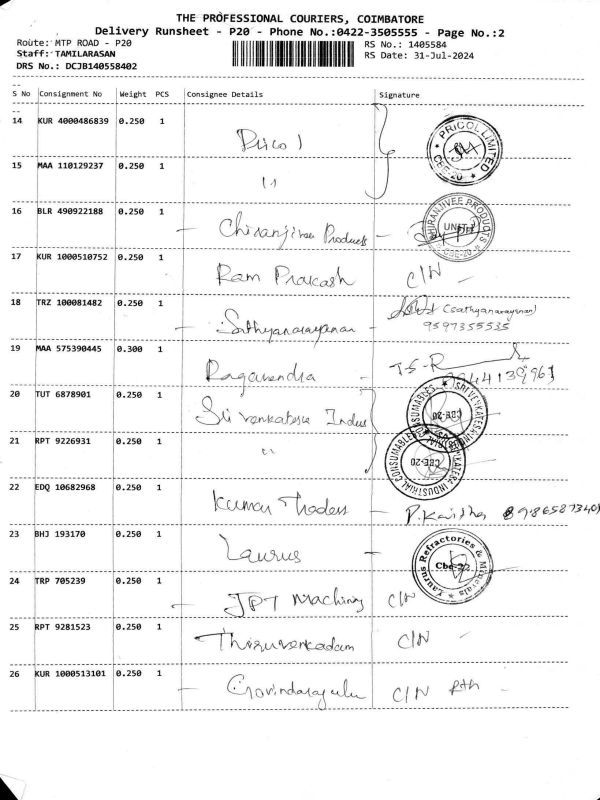 THE PROFESSIONAL COURIERS, COIMBATORE
Delivery Runsheet - P20 - Phone No.:0422-3505555 - Page No.:2
Route: MTP ROAD - P20 RS No.: 1405584
Staff: TAMILARASAN RS Date: 31-Jul-2024
DRS No.: DCJB140558402
S No Consignment No Weight PCS Consignee Details Signature
14 KUR 4000486839 0.250 1 Pricol PRICOL LIMITED CBE-20
15 MAA 110129237 0.250 1 "
16 BLR 490922188 0.250 1 - Chiranjivee Products - CHIRANJIVEE PRODUCTS UNIT CBE-20
17 KUR 1000510752 0.250 1 Ram Prakash C/N -
18 TRZ 100081482 0.250 1 - Sathyanarayanan - (Sathyanarayanan)
9597355535
19 MAA 575390445 0.300 1 Ragavendra -
20 TUT 6878901 0.250 1 Sri Venkatesa Indus SRI VENKATESWARA INDUSTRIAL CONSUMABLES CBE-20
21 RPT 9226931 0.250 1 " SRI VENKATESWARA INDUSTRIAL CONSUMABLES CBE-20
22 EDQ 10682968 0.250 1 Kumar Traders -
23 BHJ 193170 0.250 1 Laurus - Taurus Refractories & Minerals Cbe-22
24 TRP 705239 0.250 1 - JPT Machinary C/N
25 RPT 9281523 0.250 1 Thiruvenkadam C/N -
26 KUR 1000513101 0.250 1 - Govindarajulu C/N -